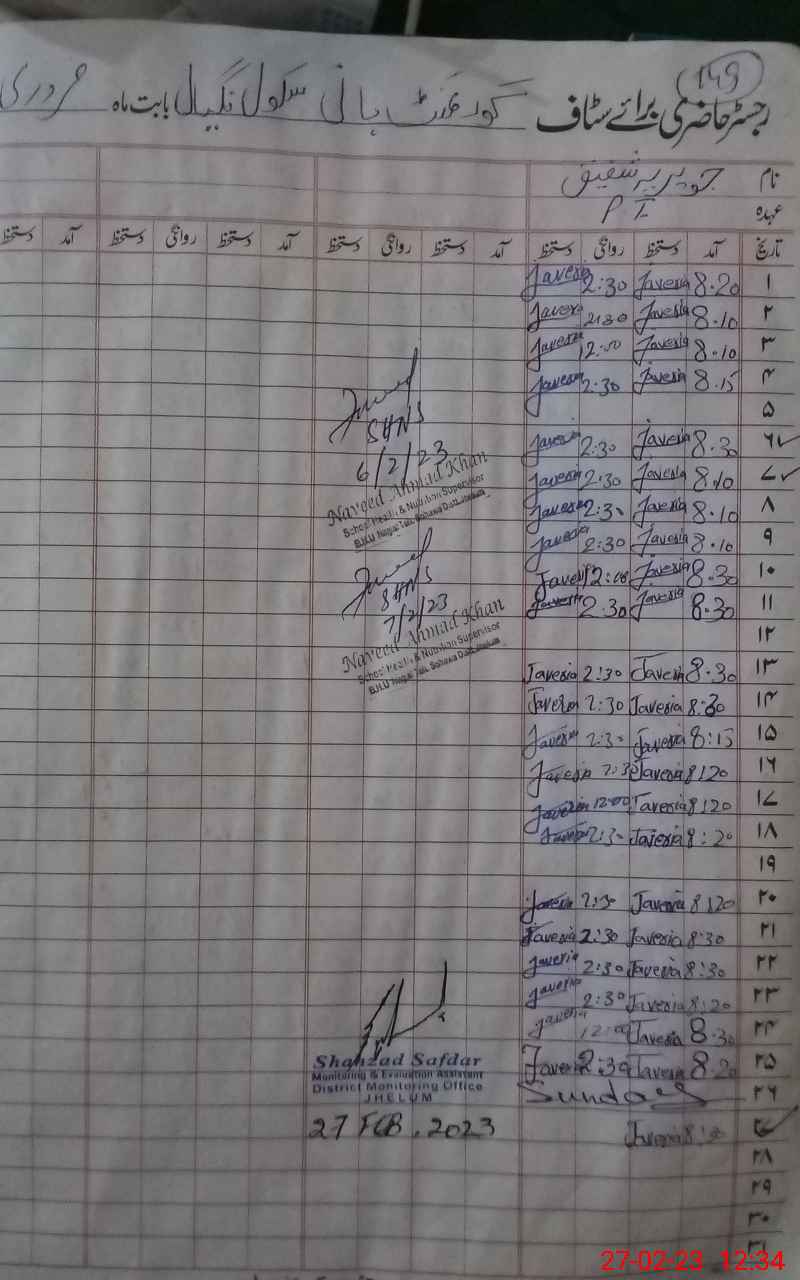 149
رجسٹر حاضری برائے سٹاف گورنمنٹ ہائی سکول نگیال بابت ماہ فروری
نام جویریہ شفیق
عہدہ PTI
تاریخ آمد دستخط روانگی دستخط آمد دستخط روانگی دستخط آمد دستخط روانگی دستخط آمد دستخط
۱ 8.20 Javeria 2:30 Javeria
۲ 8.10 Javeria 2:30 Javeria
۳ 8.10 Javeria 12:00 Javeria
۴ 8.15 Javeria 2:30 Javeria
۵
۶ 8.30 Javeria 2:30 Javeria
۷ 8.10 Javeria 2:30 Javeria
۸ 8.10 Javeria 2:30 Javeria
۹ 8.10 Javeria 2:30 Javeria
۱۰ 8.30 Javeria 12:00 Javeria
۱۱ 8.30 Javeria 2:30 Javeria
۱۲
۱۳ 8.30 Javeria 2:30 Javeria
۱۴ 8:30 Javeria 2:30 Javeria
۱۵ 8:15 Javeria 2:30 Javeria
۱۶ 8:20 Javeria 2:30 Javeria
۱۷ 8:20 Javeria 12:00 Javeria
۱۸ 8:20 Javeria 2:30 Javeria
۱۹
۲۰ 8:20 Javeria 2:30 Javeria
۲۱ 8:30 Javeria 2:30 Javeria
۲۲ 8:30 Javeria 2:30 Javeria
۲۳ 8:20 Javeria 2:30 Javeria
۲۴ 8.30 Javeria 12:00 Javeria
۲۵ 8.20 Javeria 2:30 Javeria
۲۶ Sunday
۲۷ Javeria
۲۸
۲۹
۳۰
۳۱
SHNS
6/2/23
Naveed Ahmad Khan
School Health & Nutrition Supervisor
SHNS
7/2/23
Naveed Ahmad Khan
School Health & Nutrition Supervisor
Shahzad Safdar
Monitoring & Evaluation Assistant
District Monitoring Office
JHELUM
27 FEB. 2023
27-02-23 12:34